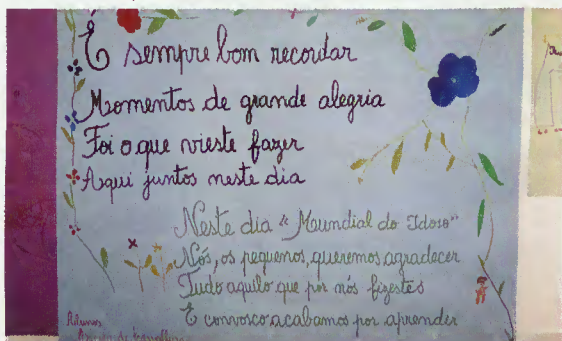 É sempre bom recordar
Momentos de grande alegria
Foi o que vieste fazer
Aqui juntos neste dia
Neste dia "Mundial do Idoso"
Nós, os pequenos, queremos agradecer
Tudo aquilo que por nós fizestes
E convosco acabamos por aprender
Alunos